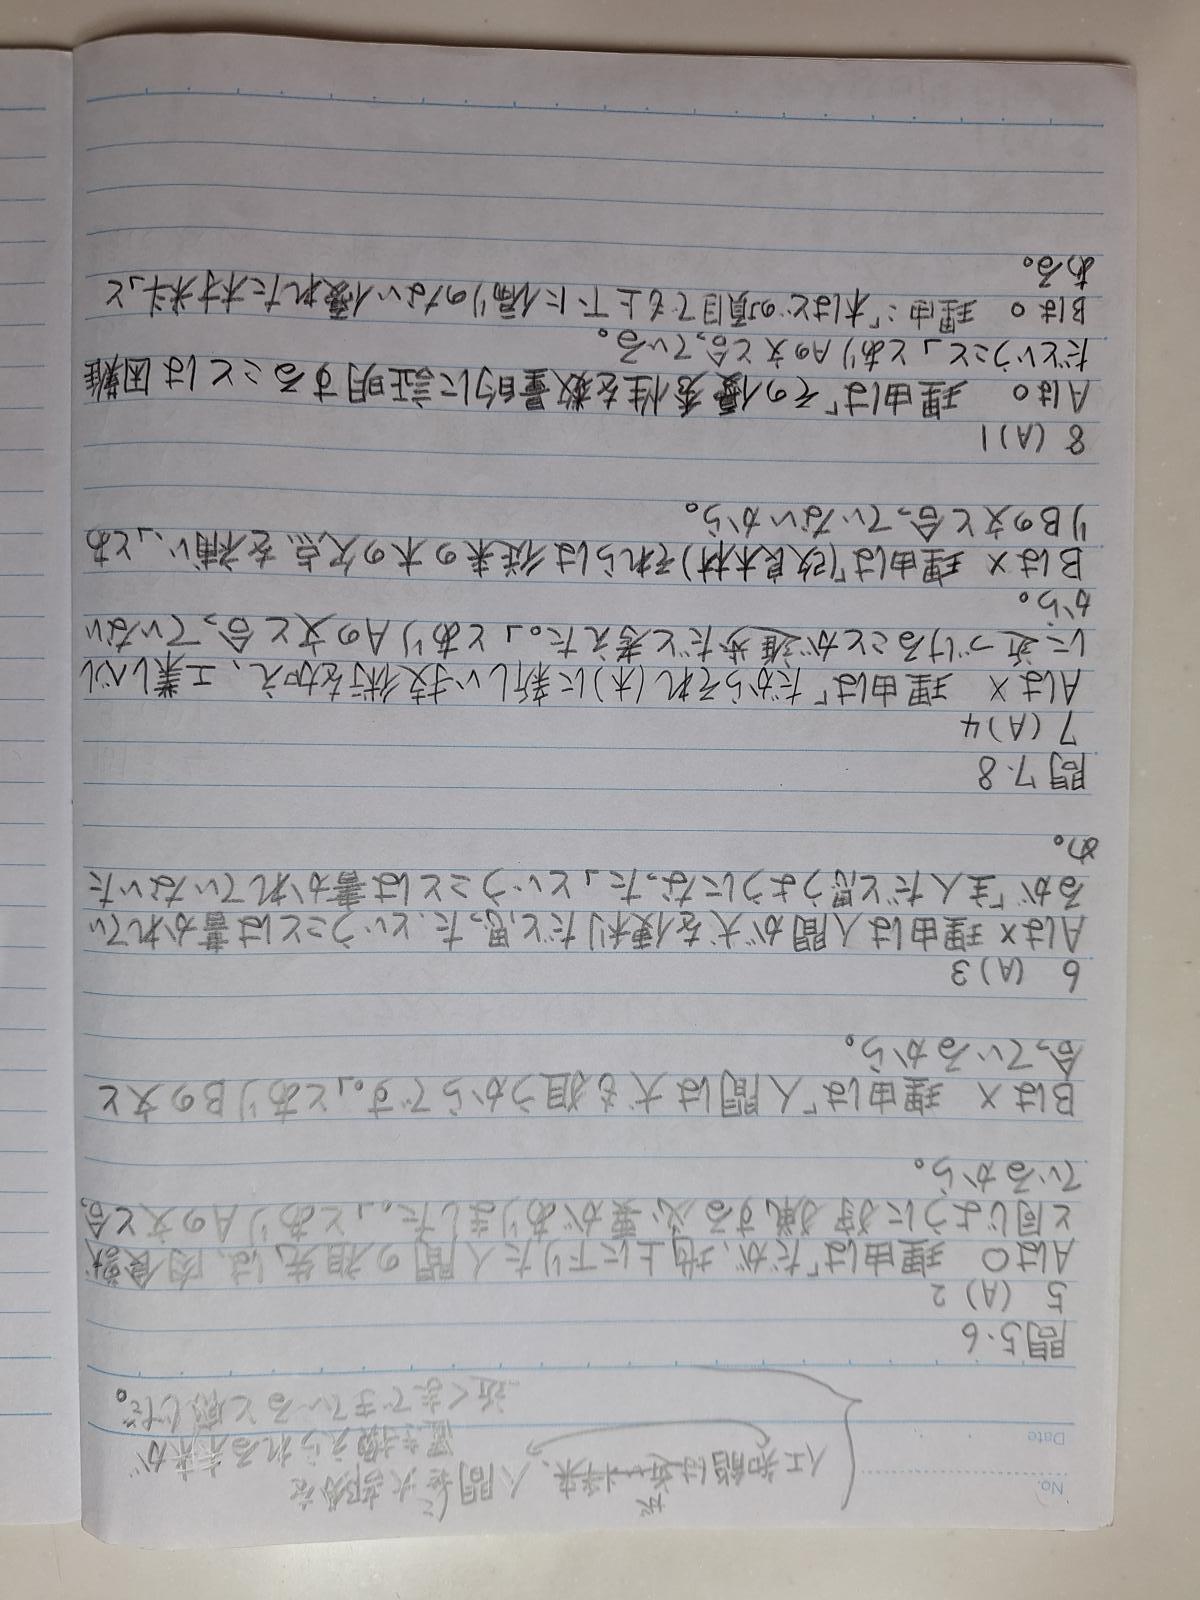 No.
Date
人工知能は将来、人間を大部分を
置き換えられる未来が
近くまできていると感じた。
問5・6
5 (A) 2
Aは○ 理由は「だが、地上に下りた人間の祖先は、肉食獣
と同じように狩猟する必要がありました。」とありAの文と合っ
ているから。
Bは× 理由は「人間は犬も狙うからです。」とありBの文と
合っているから。
6 (A) 3
Aは× 理由は人間が犬を便利だと思った、ということは書かれてい
るが「主人だと思うようになった」ということは書かれていないた
め。
問7・8
7 (A) 4
Aは× 理由は「だからそれ(木)に新しい技術を加え、工業レベル
に近づけることが進歩だと考えた。」とありAの文と合っていない
から。
Bは× 理由は「(改良木材)それらは従来の木の欠点を補い、」とあ
りBの文と合っていないから。
8 (A) 1
Aは○ 理由は「その優秀性を数量的に証明することは困難
だということ」とありAの文と合っている。
Bは○ 理由:「木はどの項目でも上下に偏りのない優れた材料」と
ある。